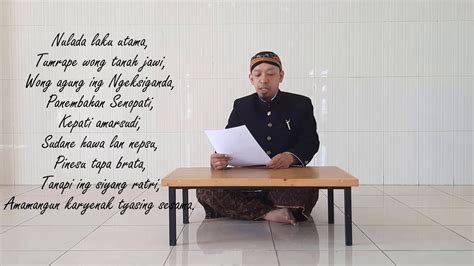 Nulada laku utama,
Tumrape wong tanah jawi,
Wong agung ing Ngeksiganda,
Panembahan Senopati,
Kepati amarsudi,
Sudane hawa lan nepsu,
Pinesu tapa brata,
Tanapi ing siyang ratri,
Amamangun karyenak tyasing sesama,